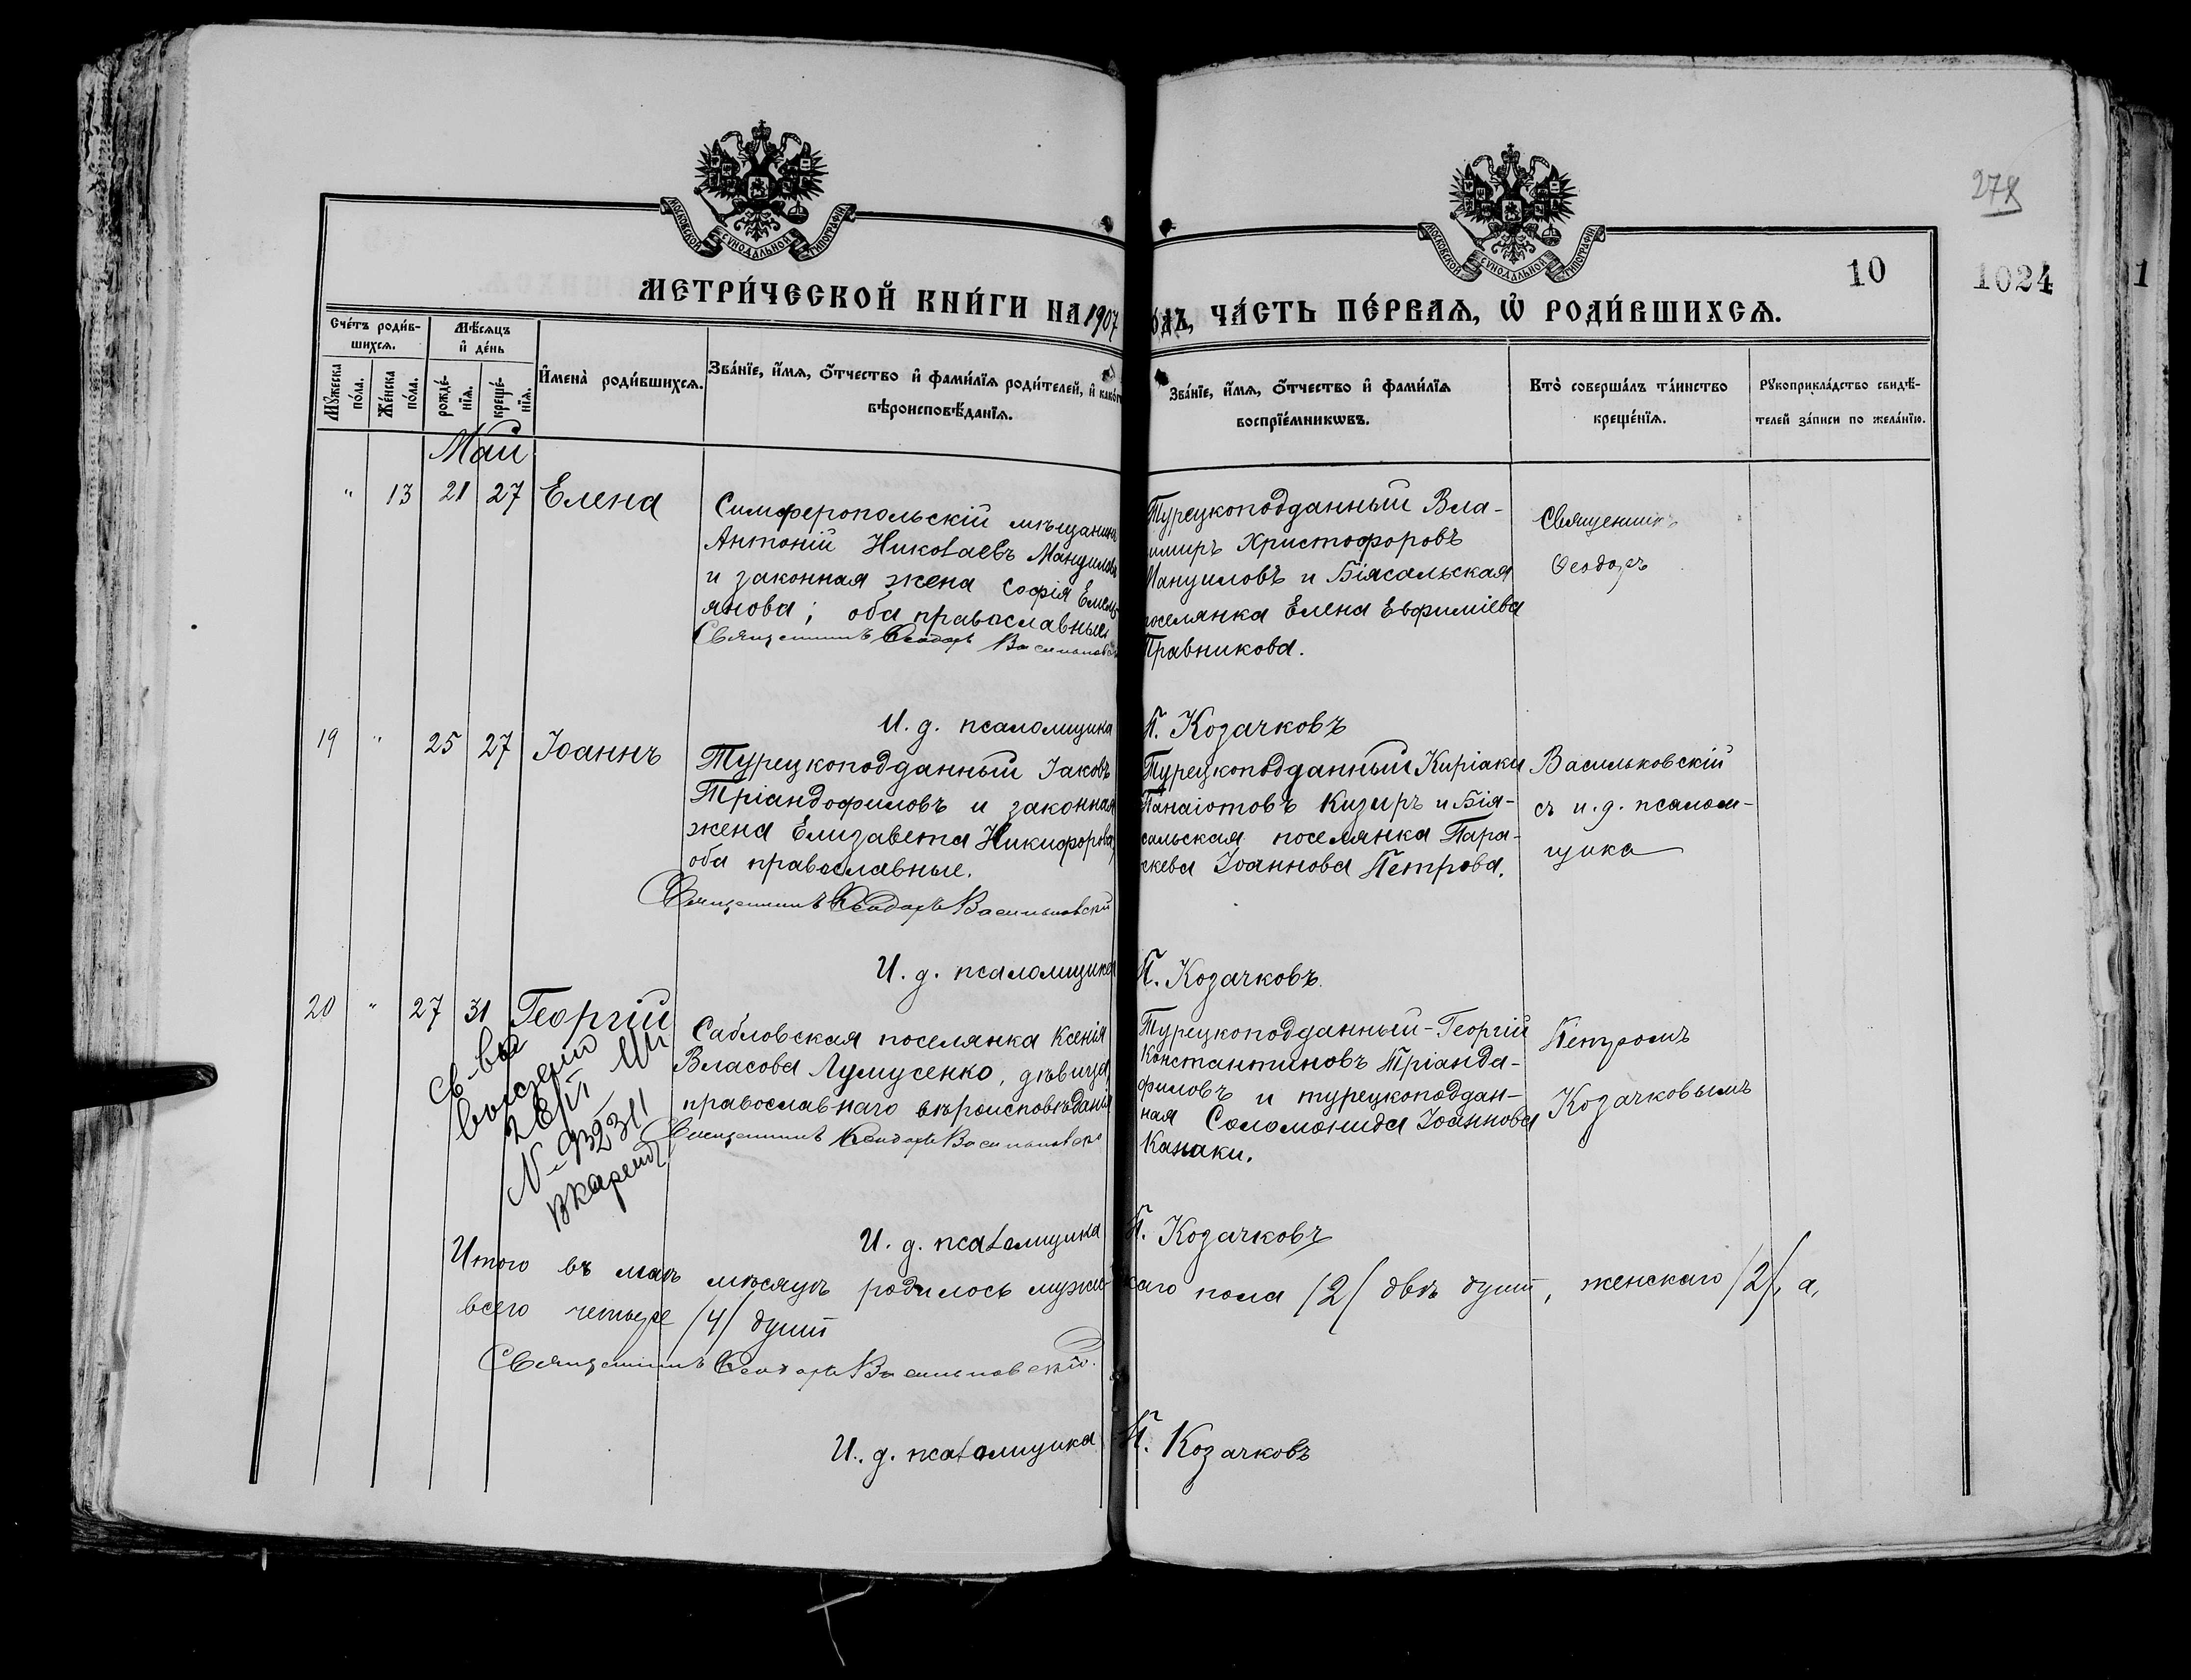 278
10
1024
1
МОСКОВСКОЙ СѴНОДАЛЬНОЙ ТИПОГРАФІИ
МОСКОВСКОЙ СѴНОДАЛЬНОЙ ТИПОГРАФІИ
МЕТРИ́ЧЕСКОЙ КНИ́ГИ НА 1907
ОДЪ, ЧА́СТЬ ПЕ́РВАѦ, Ѡ҆ РОДИ́ВШИХСѦ.
Сче́тъ роди́в-
шихсѧ.
Мꙋ́жеска
по́ла.
Же́нска
по́ла.
Мѣ́сѧцъ
и҆ де́нь
рожде́-
нїѧ.
креще́-
нїѧ.
И҆мена̀ роди́вшихсѧ.
Зва́нїе, и҆́мѧ, ѻ҆́тчество и҆ фами́лїѧ роди́телей, и҆ како́г
вѣроисповѣ́данїѧ.
Зва́нїе, и҆́мѧ, ѻ҆́тчество и҆ фами́лїѧ
воспрїе́мникѡвъ.
Кто̀ соверша́лъ та́инство
креще́нїѧ.
Рꙋкоприкла́дство свидѣ́-
телей за́писи по жела́нїю.
Май
" 13 21 27 Елена
Симферопольскій мѣщанинъ
Антоній Николаевъ Мануиловъ
и законная жена Софія Емель
янова; оба православные
Священникъ Ѳеодоръ Васильковскій
Турецкоподданный Вла-
имиръ Христофоровъ
Мануиловъ и Біясальская
поселянка Елена Евфиміева
Правникова.
Священникъ
Ѳеодоръ
И. д. псаломщика
П. Козачковъ
19 " 25 27 Іоаннъ
Турецкоподданный Іаковъ
Тріандофиловъ и законная
жена Елизавета Никифорова,
оба православные.
Священникъ Ѳеодоръ Васильковскій
Турецкоподданный Киріаки
Панаіотовъ Кизиръ и Бія-
сальская поселянка Пара-
скева Іоаннова Петрова.
Васильковскій
съ и. д. псалом-
щика
И. д. псаломщика
П. Козачковъ.
20 " 27 31 Георгій
Св-во
выслано
№ 93231
Сабловская поселянка Ксенія
Власова Лумусенко, дѣвица,
православнаго вѣроисповѣданія
Священникъ Ѳеодоръ Васильковскі
Турецкоподданный-Георгій
Константиновъ Тріанда-
филовъ и турецкоподдан-
ная Соломонида Іоаннова
Канаки.
Петромъ
Козачковымъ
И. д. псаломщика
П. Козачковъ
Итого въ маѣ мѣсяцѣ родилось мужес
каго пола /2/ двѣ души, женскаго /2/, а,
всего четыре /4/ души
Священникъ Ѳеодоръ Васильковскій.
И. д. псаломщика
П. Козачковъ